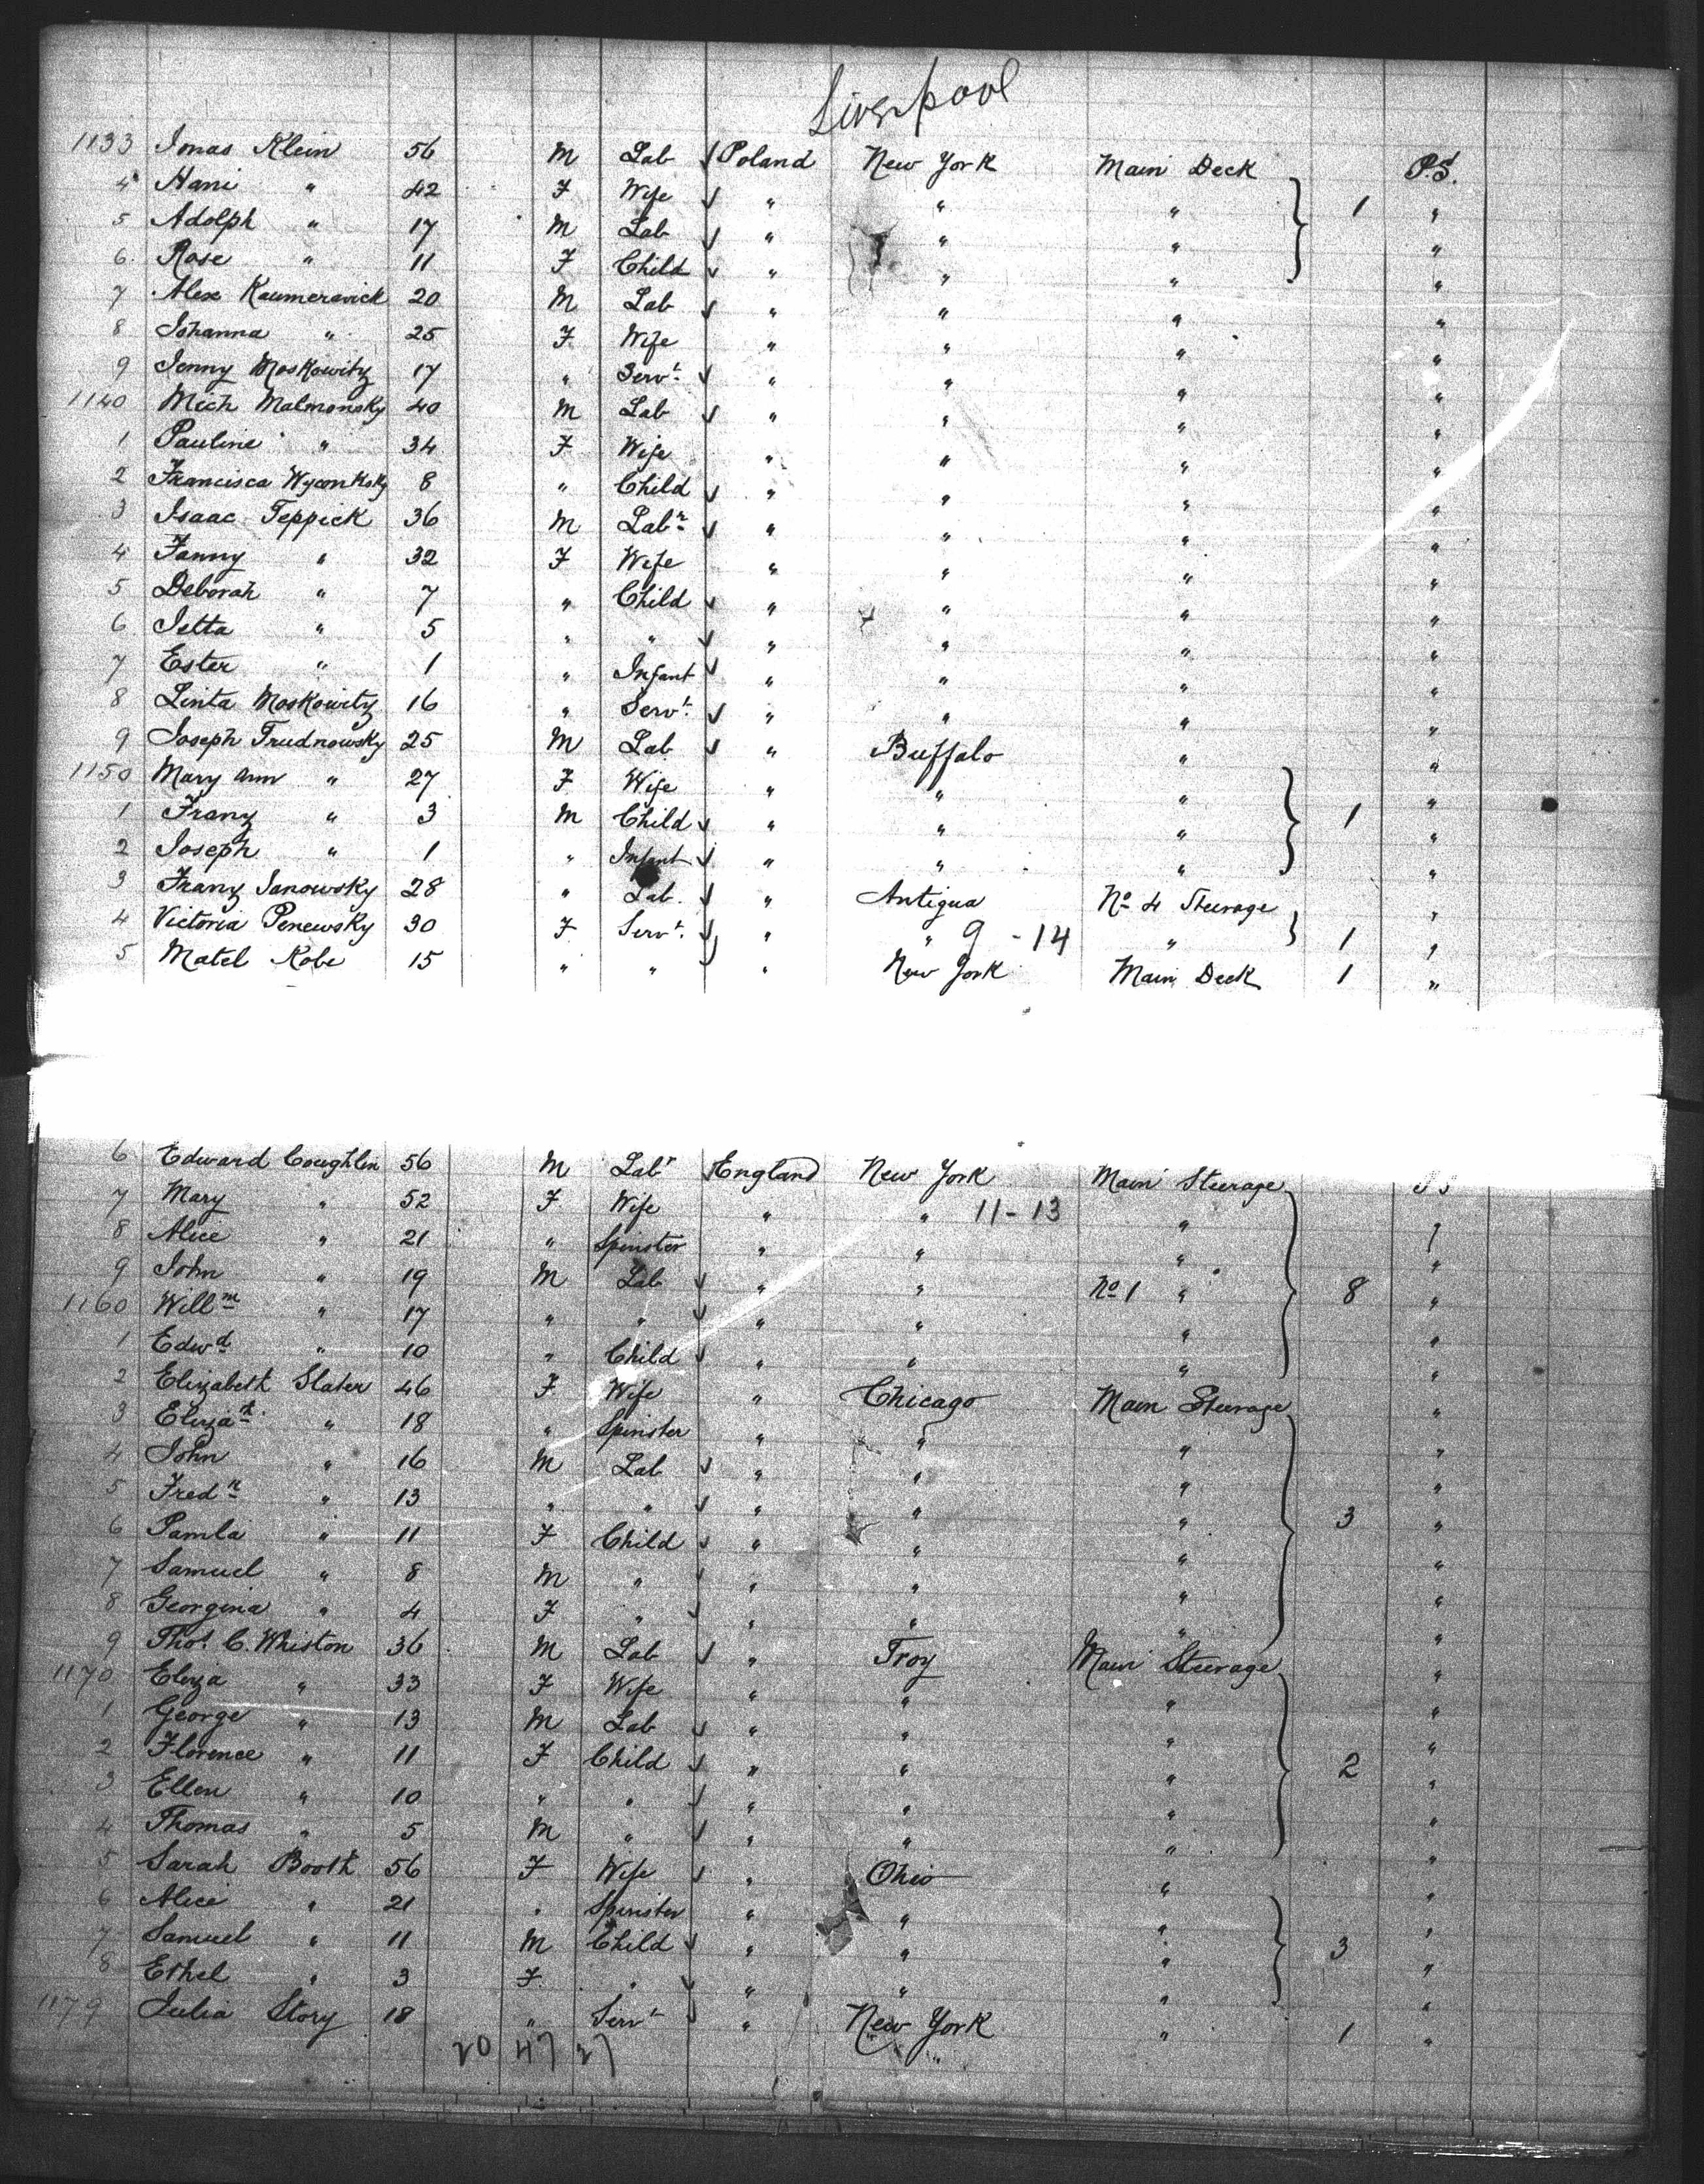 Liverpool
1133 Jonas Klein 56 M Lab Poland New York Main Deck P.S.
4 Hani " 42 F Wife " " " 1 "
5 Adolph " 17 M Lab " " " "
6 Rose " 11 F Child " " " "
7 Alex Kaumeravick 20 M Lab " " " "
8 Johanna " 25 F Wife " " " "
9 Jenny Moskowitz 17 " Servt " " " "
1140 Mich Malmonsky 40 M Lab " " " "
1 Pauline " 34 F Wife " " " "
2 Francisca Wyconksky 8 " Child " " " "
3 Isaac Teppick 36 M Labr " " " "
4 Fanny " 32 F Wife " " " "
5 Deborah " 7 " Child " " " "
6 Jetta " 5 " " " " " "
7 Ester " 1 " Infant " " " "
8 Linta Moskowitz 16 " Servt " " " "
9 Joseph Trudnowsky 25 M Lab " Buffalo " "
1150 Mary Ann " 27 F Wife " " " "
1 Franz " 3 M Child " " " 1 "
2 Joseph " 1 " Infant " " " "
3 Franz Janowsky 28 " Lab. " Antigua No 4 Steerage "
4 Victoria Penewsky 30 F Servt " " 9 - 14 " 1 "
5 Matel Kobe 15 " " " New York Main Deck 1 "
6 Edward Coughlin 56 M Labr England New York Main Steerage
7 Mary " 52 F Wife " " 11 - 13 " "
8 Alice " 21 " Spinster " " " "
9 John " 19 M Lab " " No 1 " 8 "
1160 Willm " 17 " " " " " "
1 Edwd " 10 " Child " " " "
2 Elizabeth Slater 46 F Wife " Chicago Main Steerage "
3 Elizath " 18 " Spinster " " " "
4 John " 16 M Lab " " " "
5 Fredk " 13 " " " " " "
6 Pamla " 11 F Child " " " 3 "
7 Samuel " 8 M " " " " "
8 Georgina " 4 F " " " " "
9 Thos. C. Whiston 36 M Lab " Troy Main Steerage "
1170 Eliza " 33 F Wife " " " "
1 George " 13 M Lab " " " "
2 Florence " 11 F Child " " " 2 "
3 Ellen " 10 " " " " " "
4 Thomas " 5 M " " " " "
5 Sarah Booth 56 F Wife " Ohio " "
6 Alice " 21 " Spinster " " " "
7 Samuel " 11 M Child " " " 3 "
8 Ethel " 3 F " " " " "
1179 Julia Story 18 " Servt " New York " 1 "
20 47 27